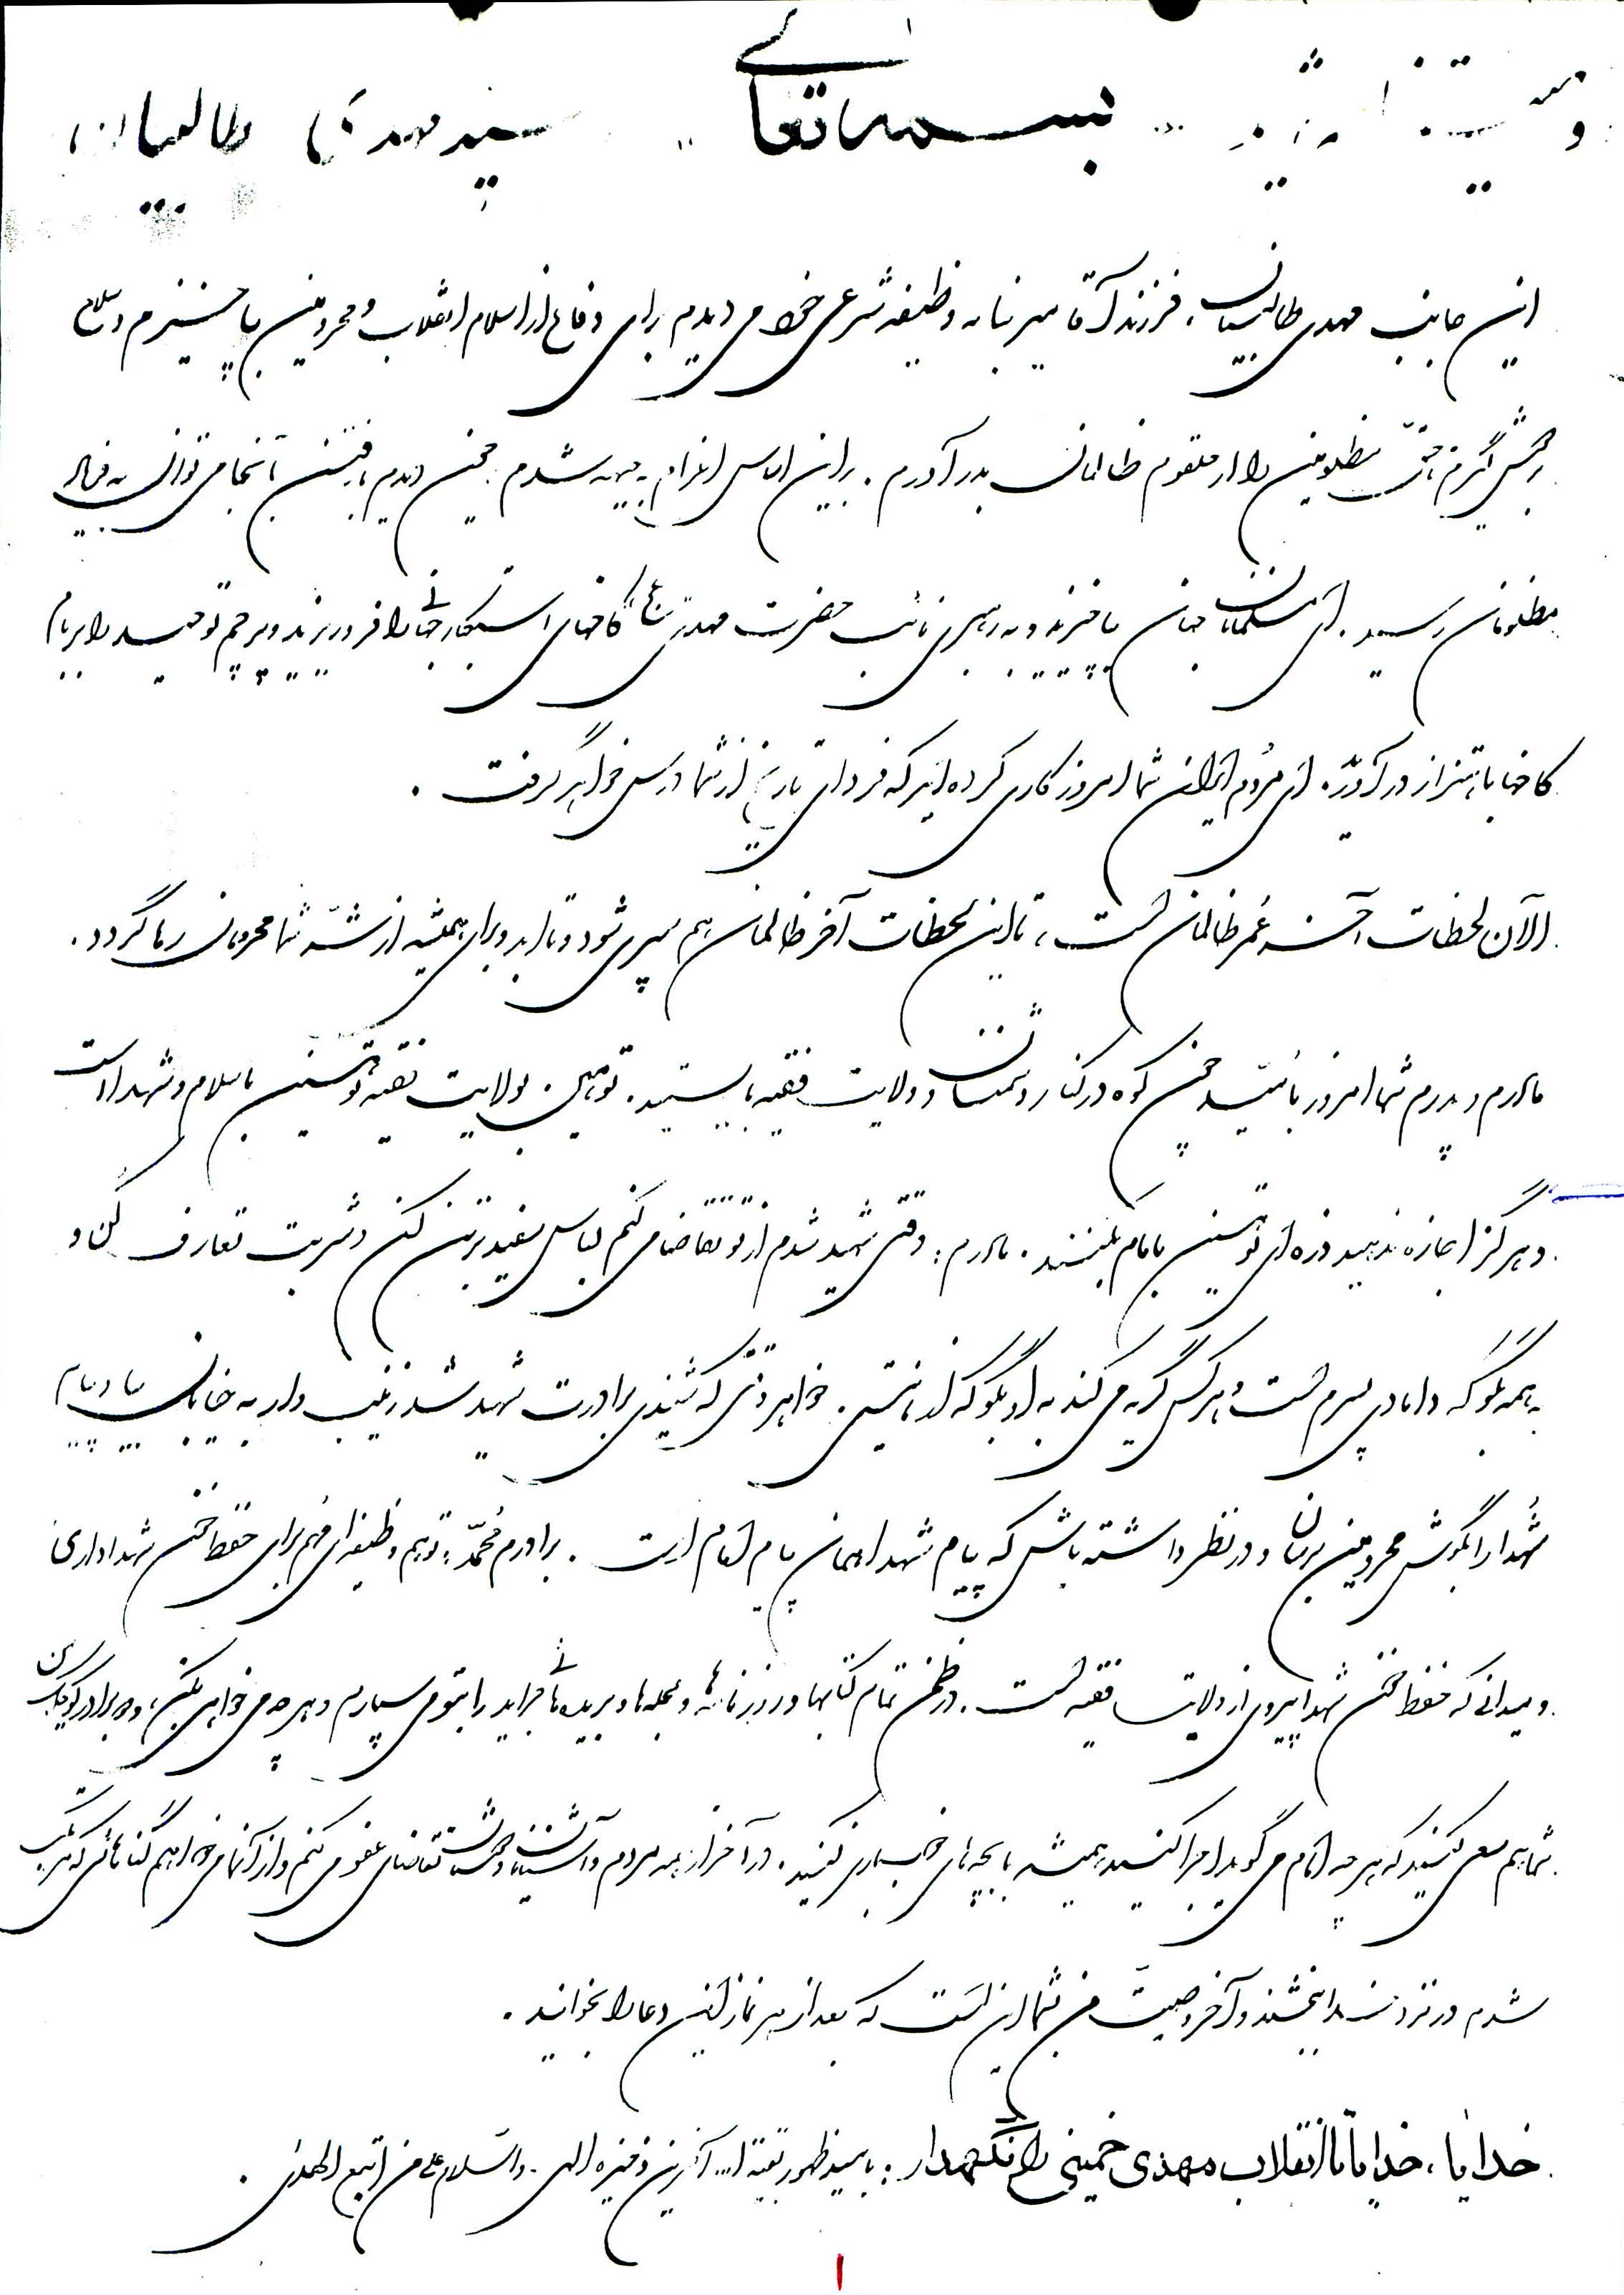 بسمه تعالی
شهید مهدی طالبیان
این جانب مهدی طالبیان، فرزند آقامیر بنا به وظیفه شرعی خود می دیدم برای دفاع از اسلام و انقلاب و محرومین بپاخیزم و سلاح
بر دوش گیرم تا حق مظلومین را از حلقوم ظالمان بدر آورم. بر این اساس اعزام به جبهه شدم چون دیدم با رفتن به آنجا می توان به فریاد
مظلومان رسید. ای مسلمانان جهان بپا خیزید و به رهبری نائب حضرت مهدی (عج) کاخهای استکبار جهانی را فرو ریزید و پرچم توحید را بر بام
کاخها باهتزاز در آورید. ای مردم ایران شما امروز کاری کرده اید که فردای تاریخ از شما درس خواهد گرفت.
الآن لحظات آخر عمر ظالمان است، تا این لحظات آخر ظالمان هم سپری شود و تا ابد و برای همیشه از شر شما محرومان رها گردد.
مادرم و پدرم شما امروز باید چون کوه در کنار دشمنان و ولایت فقیه بایستید. توهین به ولایت فقیه توهین به اسلام و شهدا است
و هرگز اجازه ندهید ذره ای توهین به امام بکنند. مادرم: وقتی شهید شدم از تو تقاضا می کنم لباس سفید بر تن کن و شربت تعارف کن و
به همه بگو که دامادی پسرم است و هر کس گریه می کند به او بگو که از ما نیستی. خواهر وقتی که شنیدی برادرت شهید شد زینب وار به خیابان بیا و پیام
شهدا را بگوش محرومین برسان و در نظر داشته باش که پیام شهدا همان پیام امام است. برادرم محمد: تو هم وظیفه ای مهم برای حفظ خون شهدا داری
و میدانی که حفظ خون شهدا پیروی از ولایت فقیه است. در ضمن تمام کتابها و روزنامه ها و مجله ها و بریده های جراید را بتو می سپارم و هر چه می خواهی بکن، و برادر کوچک
شما هم سعی کنید که هر چه امام می گوید اجرا کنید و همیشه با بچه های خوب بازی کنید. در آخر از همه مردم و آشنایان و دوستان تقاضای عفو می کنم و از آنها می خواهم گناهانی که مرتکب
شدم در نزد خدا ببخشند و آخر وصیت من بشما این است که بعد از هر نماز این دعا را بخوانید.
خدایا، خدایا تا انقلاب مهدی خمینی را نگهدار: بامید ظهور بقیه ا... آخرین ذخیره الهی. والسلام علی من اتبع الهدی.
۱